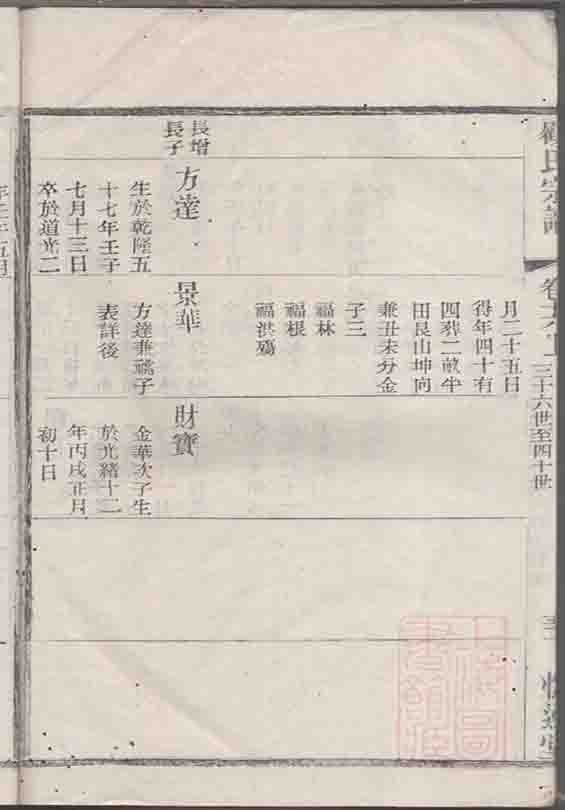 氏宗譜
三十六世至四十世
長增
長子
方達
生於乾隆五
十七年壬子
七月十三日
卒於道光二
月二十五日
得年四十有
四葬二畝半
田艮山坤向
兼丑未分金
子三
福林
福根
福洪殤
景華
方達兼祧子
表詳後
財寶
金華次子生
於光緒十二
年丙戌正月
初十日
上海圖
書館藏